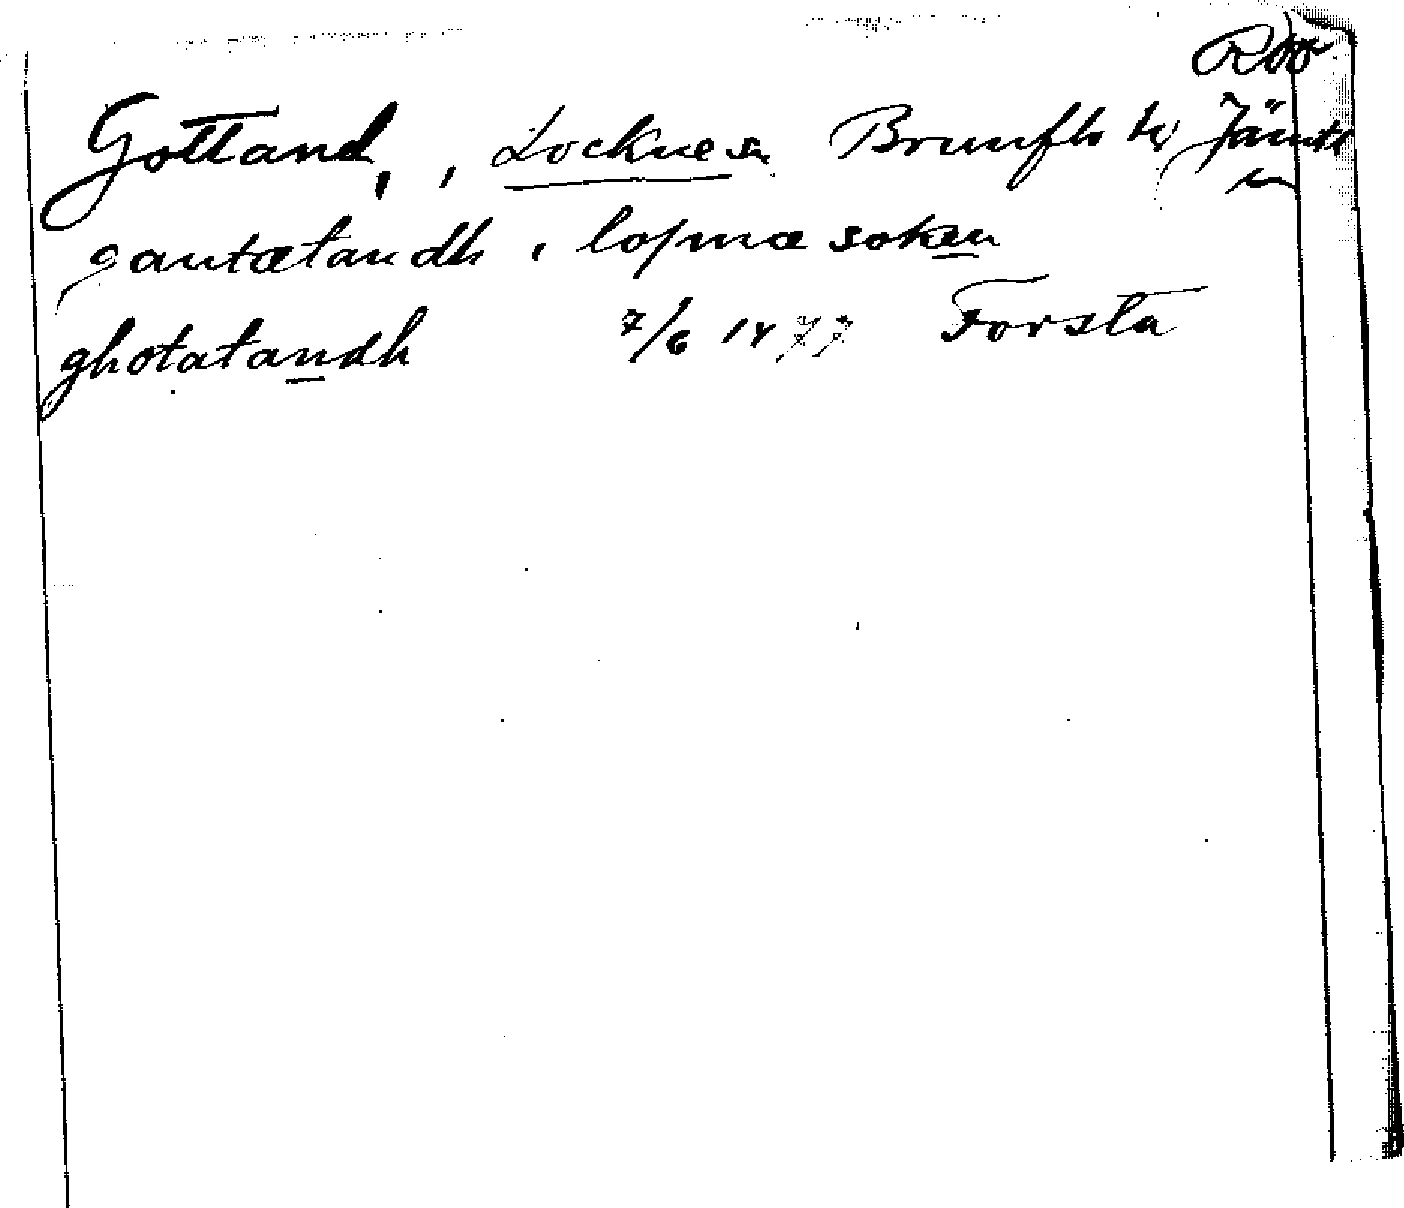 Röö
Gottand, , Lockne sn Brunflo tg Jämtl
gautatandh , lopnæ soken
ghotatandh 7/6 1477 Forsta